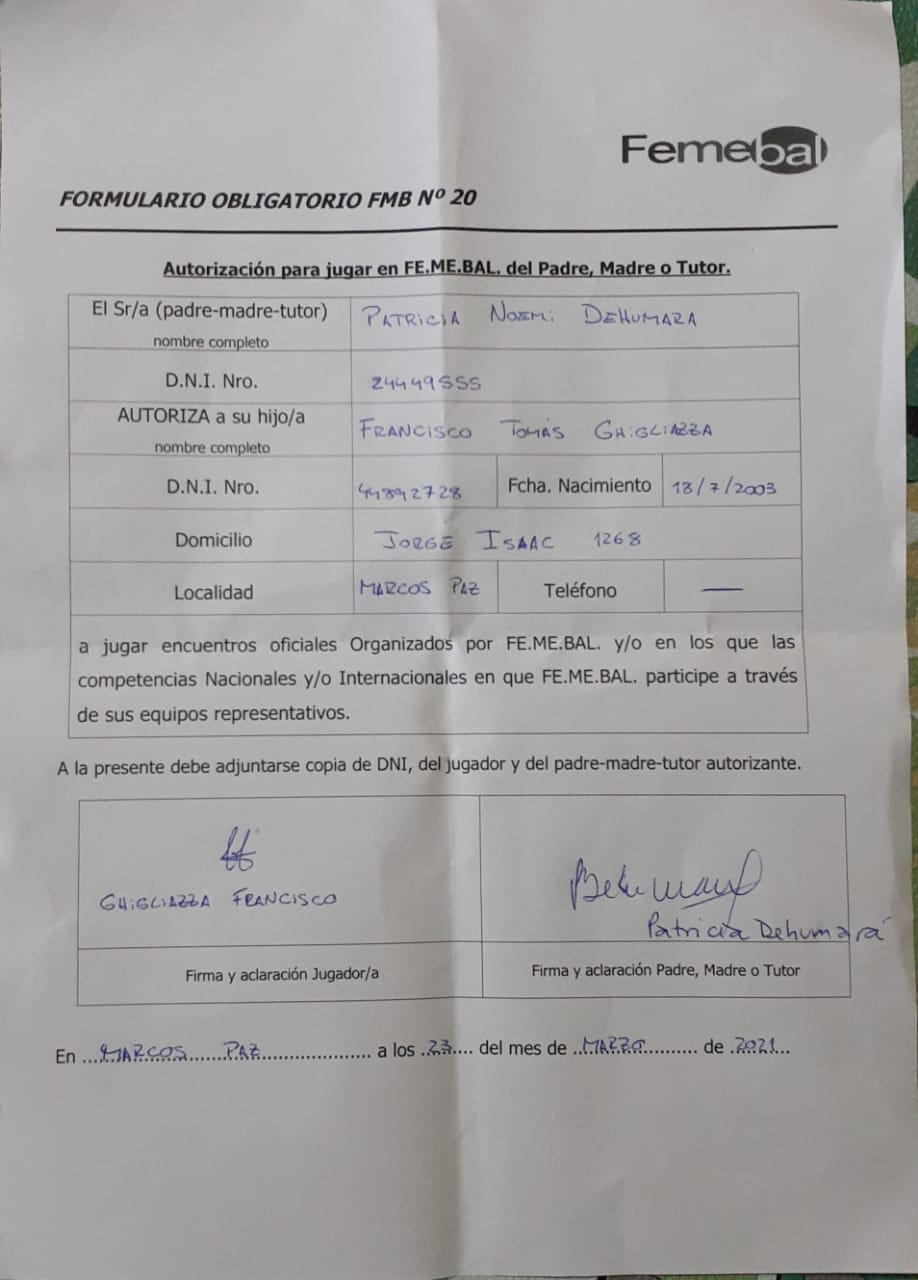 Femebal
FORMULARIO OBLIGATORIO FMB Nº 20
Autorización para jugar en FE.ME.BAL. del Padre, Madre o Tutor.
El Sr/a (padre-madre-tutor) PATRICIA NOEMI DEHUMARA
nombre completo
D.N.I. Nro. 24449555
AUTORIZA a su hijo/a FRANCISCO TOMÁS GHIGLIAZZA
nombre completo
D.N.I. Nro. 44892728 Fcha. Nacimiento 18/7/2003
Domicilio JORGE ISAAC 1268
Localidad MARCOS PAZ Teléfono —
a jugar encuentros oficiales Organizados por FE.ME.BAL. y/o en los que las
competencias Nacionales y/o Internacionales en que FE.ME.BAL. participe a través
de sus equipos representativos.
A la presente debe adjuntarse copia de DNI, del jugador y del padre-madre-tutor autorizante.
GHIGLIAZZA FRANCISCO
Dehumará
Patricia Dehumará
Firma y aclaración Jugador/a
Firma y aclaración Padre, Madre o Tutor
En ...MARCOS PAZ... a los .23.... del mes de ..MARZO.......... de .2021...